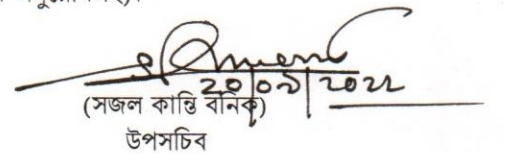 ২০|০৯|২০২২
(সজল কান্তি বনিক)
উপসচিব